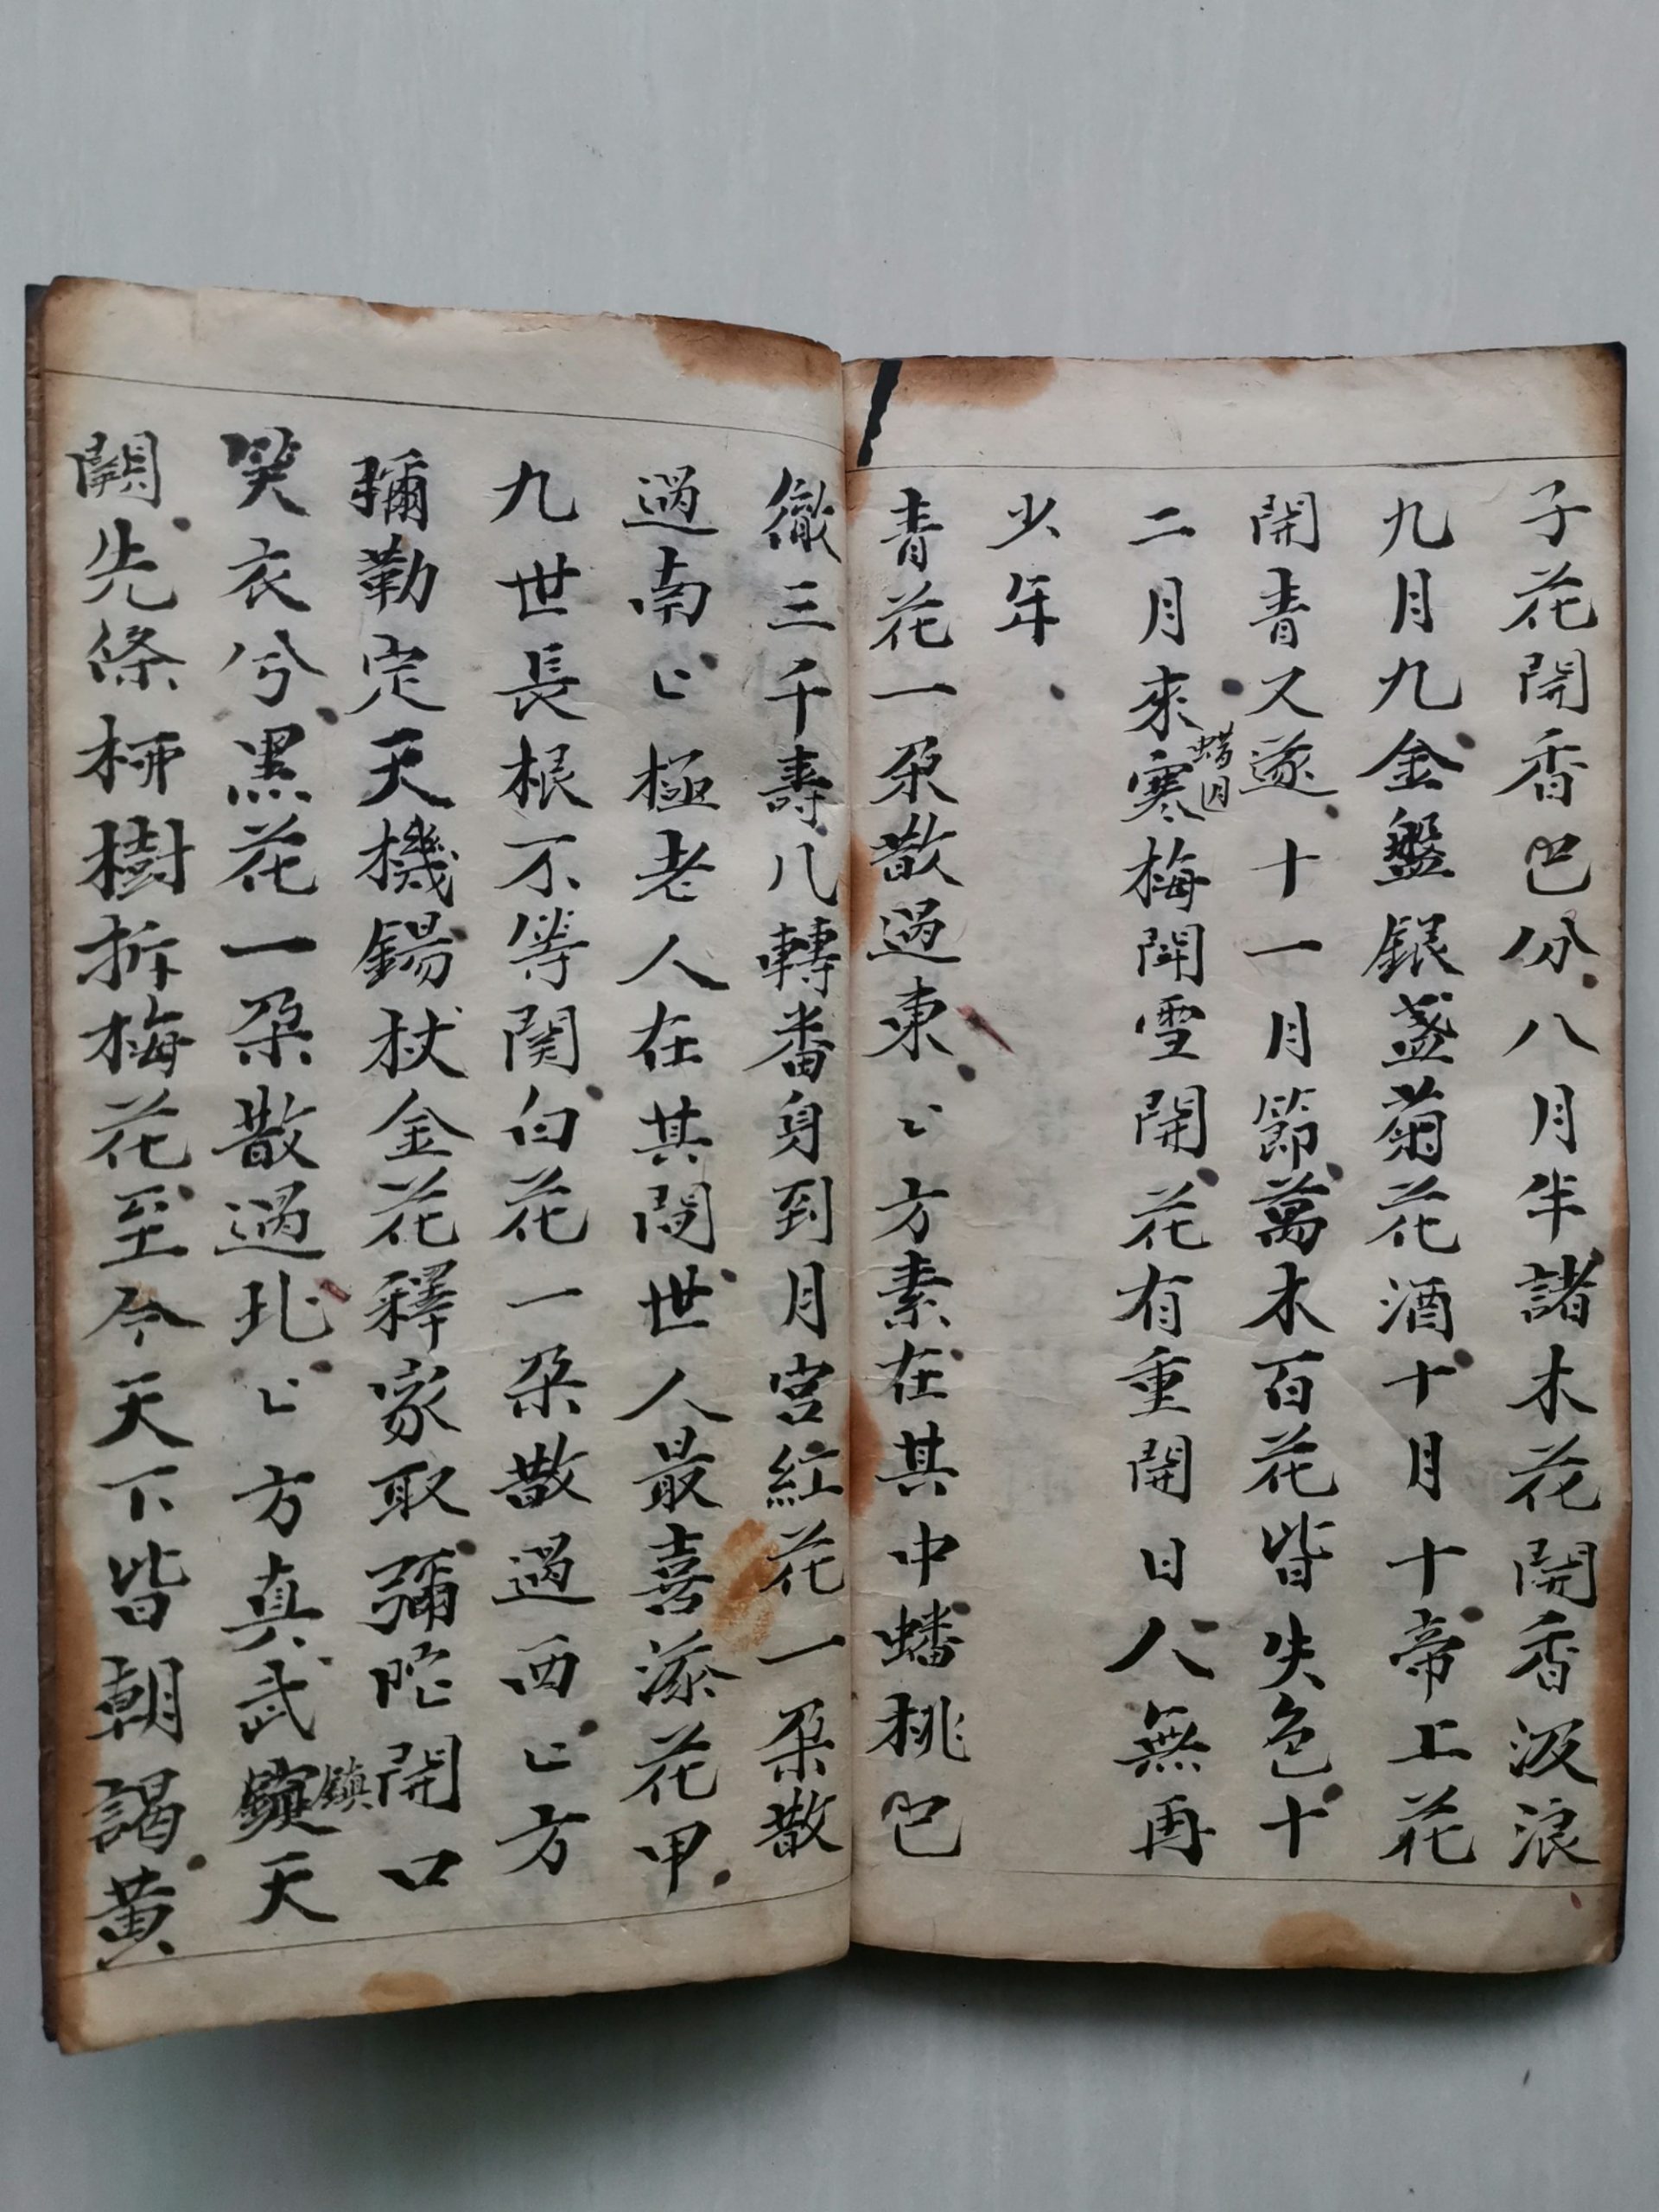 子花開香巴分八月半諸木花開香汲浪
九月九金盤銀盞菊花酒十月十帝上花
開青又遂十一月節萬木百花皆失色十
二月來寒梅開雪開花有重開日人無再
蜡月
少年
青花一朶散過東〻方素在其中蟠桃巴
徹三千壽八轉番身到月宮紅花一朶散
過南〻極老人在其間世人最喜添花甲
九世長根不等閑白花一朶散過西〻方
彌勒定天機錫杖金花釋家取彌陀開口
笑衣兮黑花一朶散過北〻方真武鎮天
鎮
闕先條柳樹拆梅花至今天下皆朝謁黃